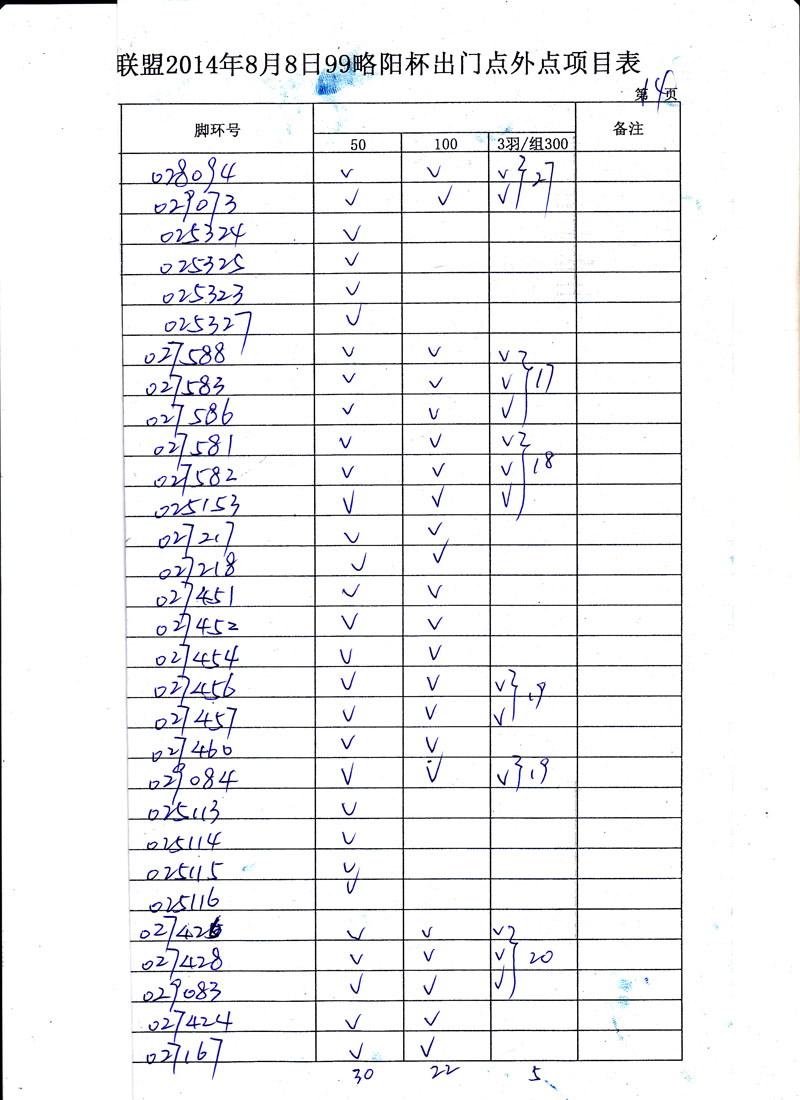 联盟2014年8月8日99略阳杯出门点外点项目表
第14页
脚环号 50 100 3羽/组300 备注
028094 ✓ ✓ ✓ } 27
029073 ✓ ✓ ✓
025324 ✓
025325 ✓
025323 ✓
025327 ✓
027588 ✓ ✓ ✓
027583 ✓ ✓ ✓ } 17
027586 ✓ ✓ ✓
027581 ✓ ✓ ✓
027582 ✓ ✓ ✓ } 18
025153 ✓ ✓ ✓
027217 ✓ ✓
027218 ✓ ✓
027451 ✓ ✓
027452 ✓ ✓
027454 ✓ ✓
027456 ✓ ✓ ✓ } 19
027457 ✓ ✓ ✓
027460 ✓ ✓
029084 ✓ ✓ ✓ } 19
025113 ✓
025114 ✓
025115 ✓
025116 ✓
✓ ✓ ✓
027428 ✓ ✓ ✓ } 20
029083 ✓ ✓ ✓
027424 ✓ ✓
027167 ✓ ✓
30 22 5